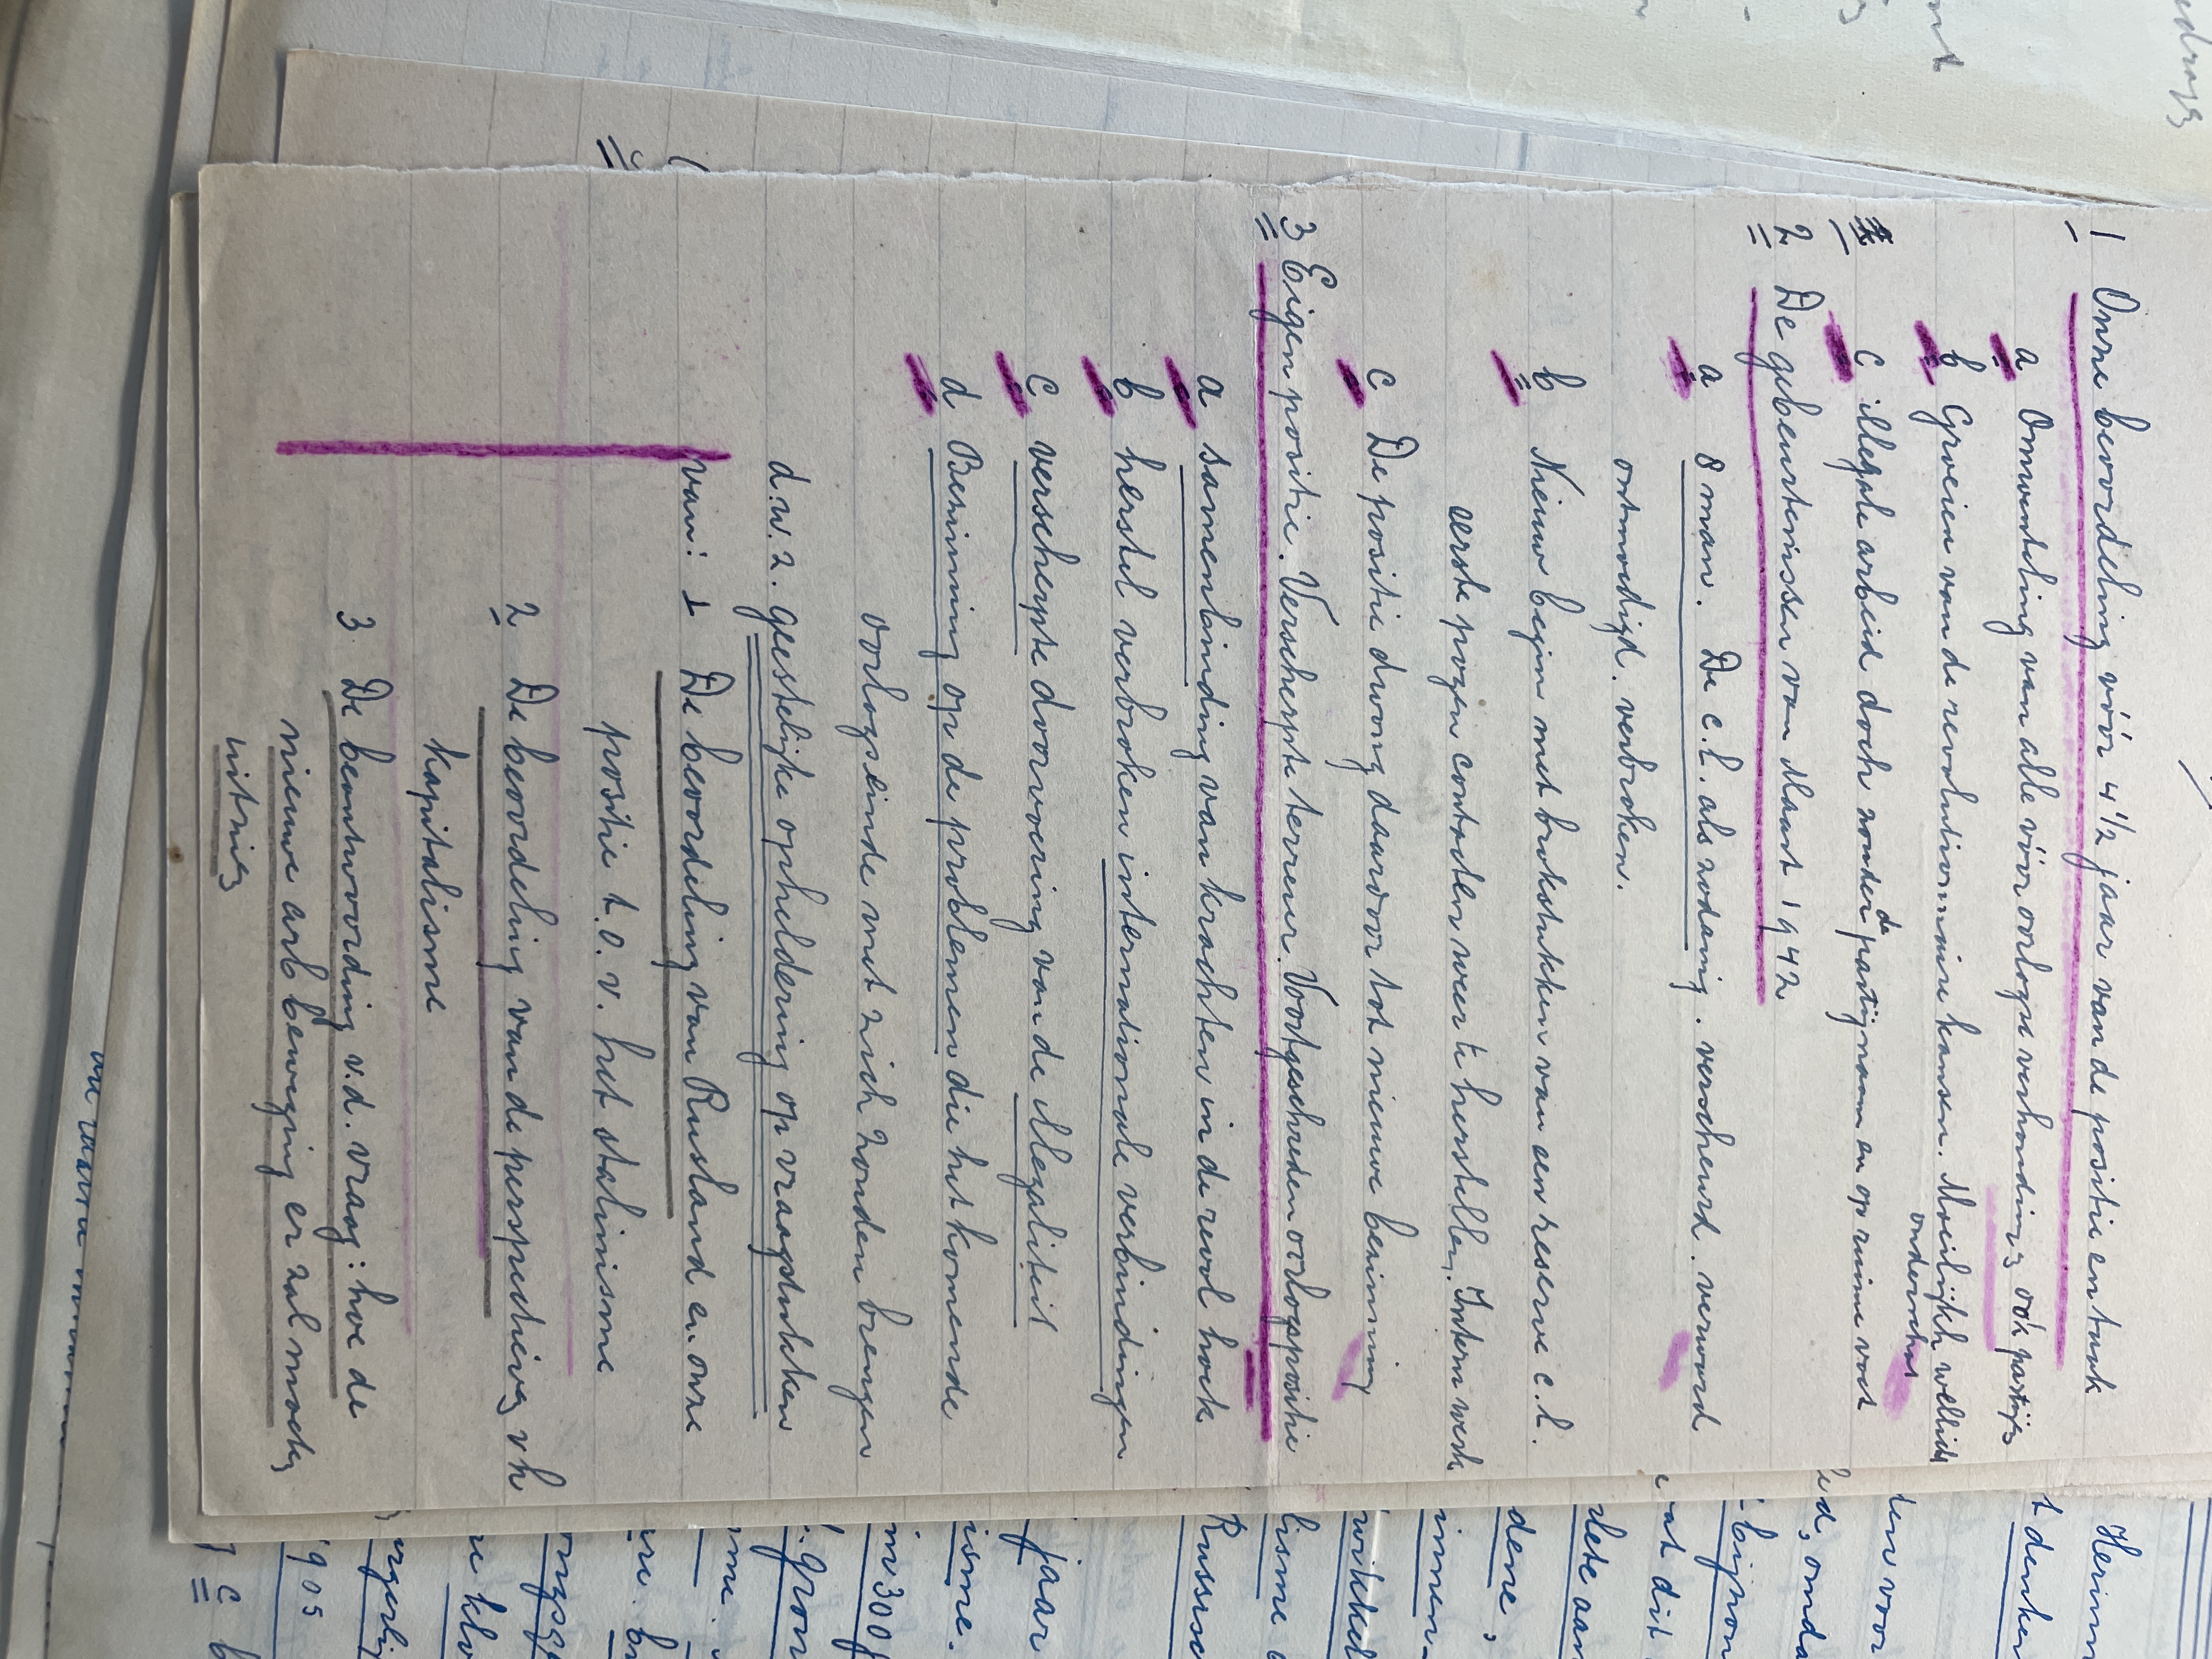 1 Onze beoordeling vóór 4 1/2 jaar van de positie en taak
a Omwenteling van alle vóóroorlogse verhoudings óók partijs
b Groeien van de revolutionnaire kansen. Moeilijkh wellicht
onderschat
c illegale arbeid doch zonder de partijnaam en op ruime voet
2 De gebeurtenissen van Maart 1942
a 8 man. De c.l. als zodanig. verscheurd. verward
ontmoedigd. verbroken.
b Nieuw begin met brokstukken van een reserve c.l.
eerste pogen contacten weer te herstellen. Intern werk
c De positie dwong daardoor tot nieuwe bezinning
3 Eigen positie. Verscherpte terreur. Voortgeschreden oorlogspositie
a samenbinding van krachten in de revol hoek
b herstel verbroken internationale verbindingen
c verscherpte doorvoering van de illegaliteit
d Bezinning op de problemen die het komende
oorlogseinde met zich zouden brengen
d.w.z. geestelijke opheldering op vraagstukken
van: 1 De beoordeling van Rusland en onze
positie t.o.v. het stalinisme
2 De beoordeling van de perspectieven vh
kapitalisme
3 De beantwoording v.d. vraag: hoe de
nieuwe arb beweging er zal moeten
uitzien
Herinn
t denken
ten voor
bijzon
at dit
dene,
Russisc
jaar
isme.
in 30
1905